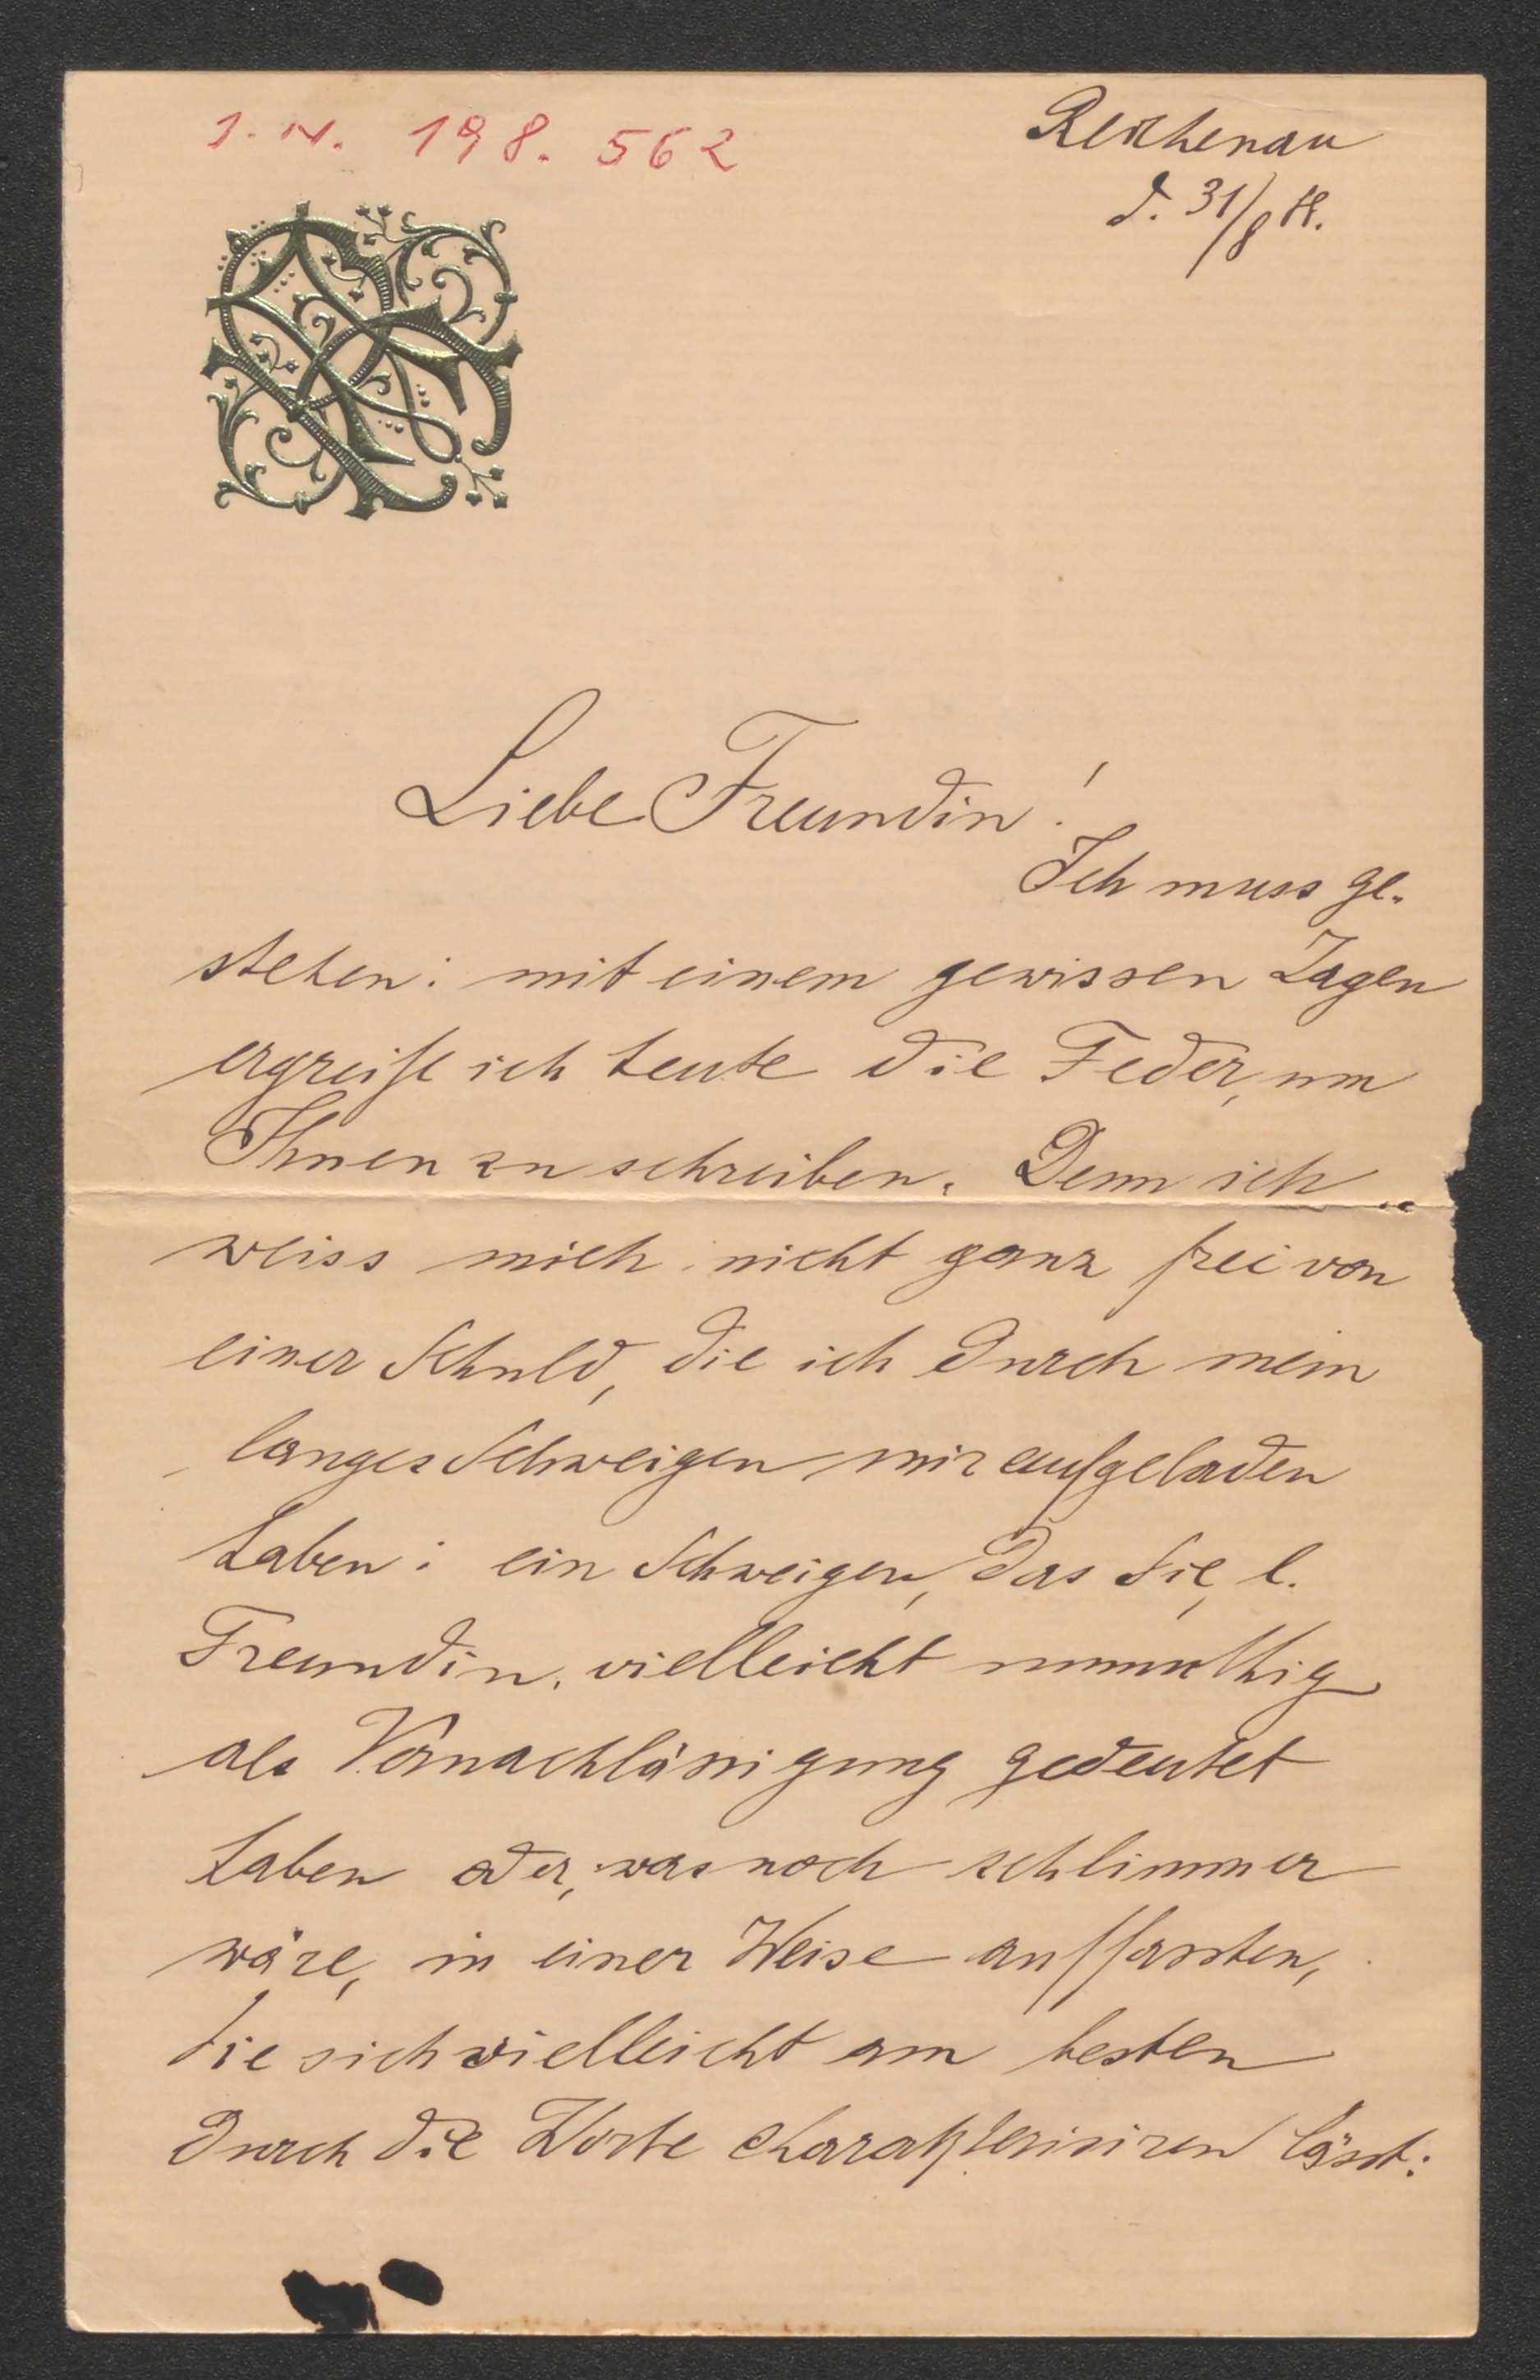 I. N. 198. 562
Reichenau
d. 31/8 88.
Liebe Freundin!
Ich muss ge-
stehen: mit einem gewissen Zagen
ergreife ich heute die Feder, um
Ihnen zu schreiben. Denn ich
weiss mich nicht ganz frei von
einer Schuld, die ich durch mein
langes Schweigen mir aufgeladen
haben: ein Schweigen, das Sie, l.
Freundin, vielleicht unmuthig
als Vernachlässigung gedeutet
haben oder, was noch schlimmer
wäre, in einer Weise auffassten,
die sich vielleicht am besten
durch die Worte charakterisiren lässt: